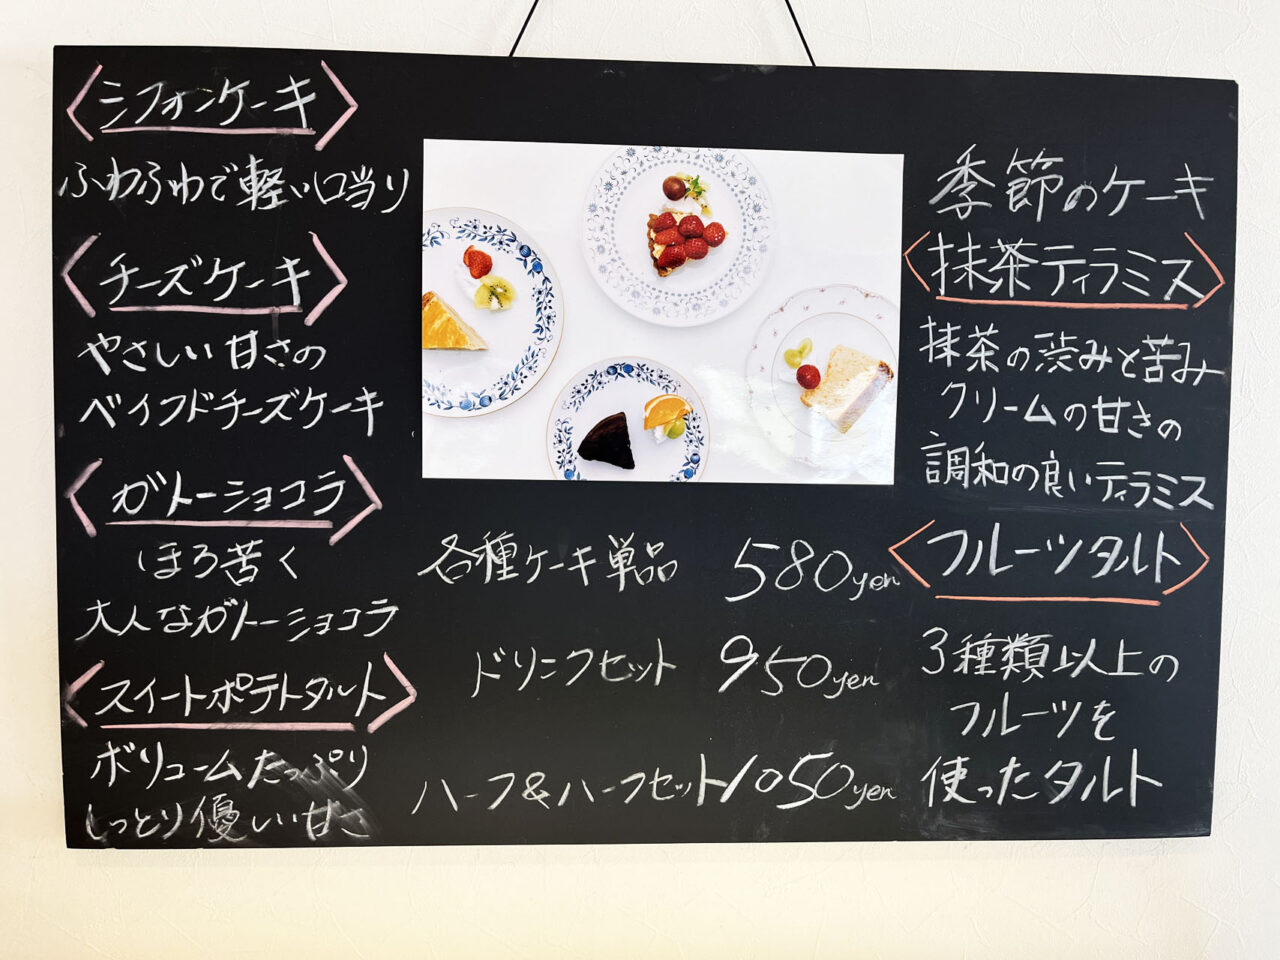 シフォンケーキ
ふわふわで軽い口当り
チーズケーキ
やさしい甘さの
ベイクドチーズケーキ
ガトーショコラ
ほろ苦く
大人なガトーショコラ
スイートポテトタルト
ボリュームたっぷり
しっとり優しい甘さ
各種ケーキ単品 580yen
ドリンクセット 950yen
ハーフ&ハーフセット 1050yen
季節のケーキ
抹茶ティラミス
抹茶の渋みと苦み
クリームの甘さの
調和の良いティラミス
フルーツタルト
3種類以上の
フルーツを
使ったタルト